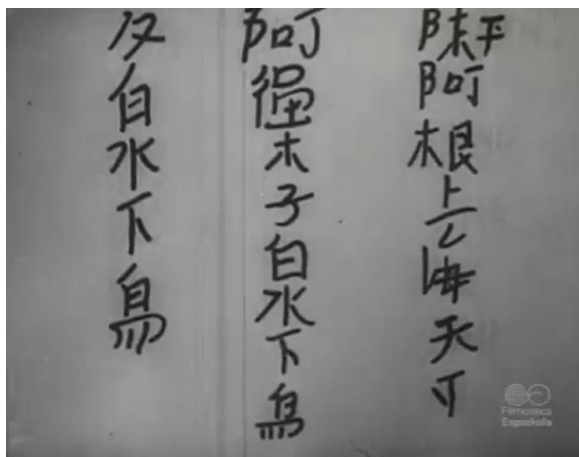 阿根上海天寸
阿木子白水下鳥
白水下鳥
Filmoteca
Española